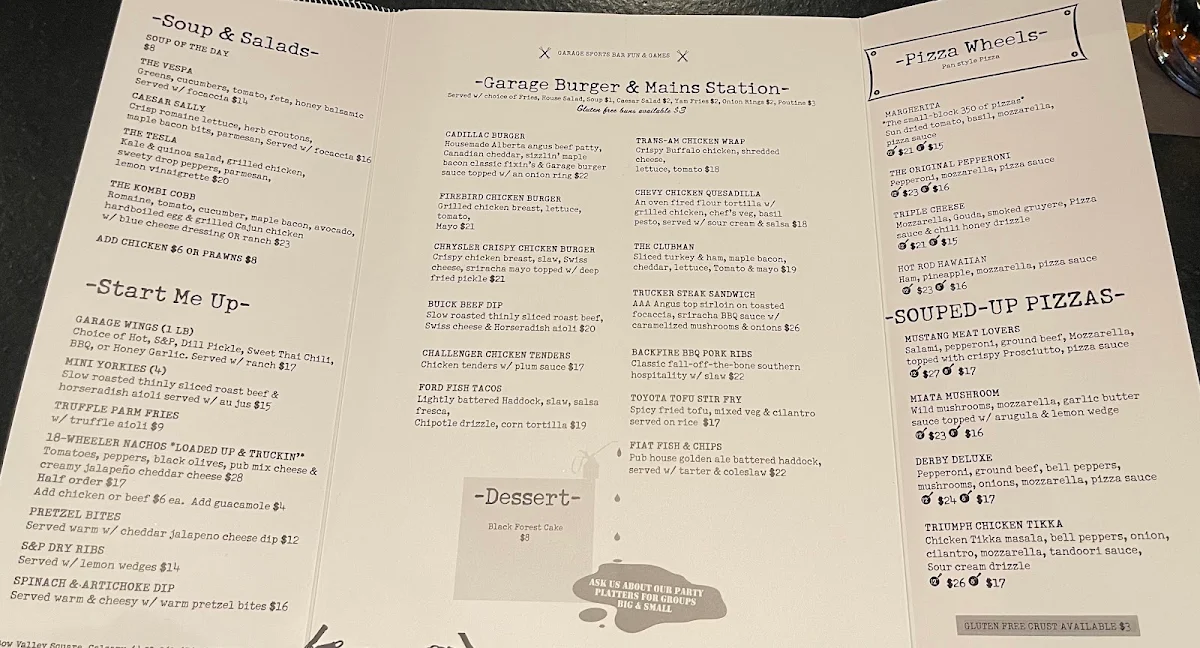 -Soup & Salads-
SOUP OF THE DAY
$8
THE VESPA
Greens, cucumbers, tomato, feta, honey balsamic
Served w/ focaccia $14
CAESAR SALLY
Crisp romaine lettuce, herb croutons,
maple bacon bits, parmesan, Served w/ focaccia $16
THE TESLA
Kale & quinoa salad, grilled chicken,
sweety drop peppers, parmesan,
lemon vinaigrette $20
THE KOMBI COBB
Romaine, tomato, cucumber, maple bacon, avocado,
hardboiled egg & grilled Cajun chicken
w/ blue cheese dressing OR ranch $23
ADD CHICKEN $6 OR PRAWNS $8
-Start Me Up-
GARAGE WINGS (1 LB)
Choice of Hot, S&P, Dill Pickle, Sweet Thai Chili,
BBQ, or Honey Garlic. Served w/ ranch $17
MINI YORKIES (4)
Slow roasted thinly sliced roast beef &
horseradish aioli served w/ au jus $15
TRUFFLE PARM FRIES
w/ truffle aioli $9
18-WHEELER NACHOS "LOADED UP & TRUCKIN'"
Tomatoes, peppers, black olives, pub mix cheese &
creamy jalapeño cheddar cheese $28
Half order $17
Add chicken or beef $6 ea. Add guacamole $4
PRETZEL BITES
Served warm w/ cheddar jalapeno cheese dip $12
S&P DRY RIBS
Served w/ lemon wedges $14
SPINACH & ARTICHOKE DIP
Served warm & cheesy w/ warm pretzel bites $16
Bow Valley Square, Calgary
GARAGE SPORTS BAR FUN & GAMES
-Garage Burger & Mains Station-
Served w/ choice of Fries, House Salad, Soup $1, Caesar Salad $2, Yam Fries $2, Onion Rings $2, Poutine $3
Gluten free buns available $3
CADILLAC BURGER
Housemade Alberta angus beef patty,
Canadian cheddar, sizzlin' maple
bacon classic fixin's & Garage burger
sauce topped w/ an onion ring $22
FIREBIRD CHICKEN BURGER
Grilled chicken breast, lettuce,
tomato,
Mayo $21
CHRYSLER CRISPY CHICKEN BURGER
Crispy chicken breast, slaw, Swiss
cheese, sriracha mayo topped w/ deep
fried pickle $21
BUICK BEEF DIP
Slow roasted thinly sliced roast beef,
Swiss cheese & Horseradish aioli $20
CHALLENGER CHICKEN TENDERS
Chicken tenders w/ plum sauce $17
FORD FISH TACOS
Lightly battered Haddock, slaw, salsa
fresca,
Chipotle drizzle, corn tortilla $19
TRANS-AM CHICKEN WRAP
Crispy Buffalo chicken, shredded
cheese,
lettuce, tomato $18
CHEVY CHICKEN QUESADILLA
An oven fired flour tortilla w/
grilled chicken, chef's veg, basil
pesto, served w/ sour cream & salsa $18
THE CLUBMAN
Sliced turkey & ham, maple bacon,
cheddar, lettuce, Tomato & mayo $19
TRUCKER STEAK SANDWICH
AAA Angus top sirloin on toasted
focaccia, sriracha BBQ sauce w/
caramelized mushrooms & onions $26
BACKFIRE BBQ PORK RIBS
Classic fall-off-the-bone southern
hospitality w/ slaw $22
TOYOTA TOFU STIR FRY
Spicy fried tofu, mixed veg & cilantro
served on rice $17
FIAT FISH & CHIPS
Pub house golden ale battered haddock,
served w/ tarter & coleslaw $22
-Dessert-
Black Forest Cake
$8
ASK US ABOUT OUR PARTY
PLATTERS FOR GROUPS
BIG & SMALL
-Pizza Wheels-
Pan style Pizza
MARGHERITA
"The small-block 350 of pizzas"
Sun dried tomato, basil, mozzarella,
pizza sauce
$21 $15
THE ORIGINAL PEPPERONI
Pepperoni, mozzarella, pizza sauce
$23 $16
TRIPLE CHEESE
Mozzarella, Gouda, smoked gruyere, Pizza
sauce & chili honey drizzle
$21 $15
HOT ROD HAWAIIAN
Ham, pineapple, mozzarella, pizza sauce
$23 $16
-SOUPED-UP PIZZAS-
MUSTANG MEAT LOVERS
Salami, pepperoni, ground beef, Mozzarella,
topped with crispy Prosciutto, pizza sauce
$27 $17
MIATA MUSHROOM
Wild mushrooms, mozzarella, garlic butter
sauce topped w/ arugula & lemon wedge
$23 $16
DERBY DELUXE
Pepperoni, ground beef, bell peppers,
mushrooms, onions, mozzarella, pizza sauce
$24 $17
TRIUMPH CHICKEN TIKKA
Chicken Tikka masala, bell peppers, onion,
cilantro, mozzarella, tandoori sauce,
Sour cream drizzle
$26 $17
GLUTEN FREE CRUST AVAILABLE $3